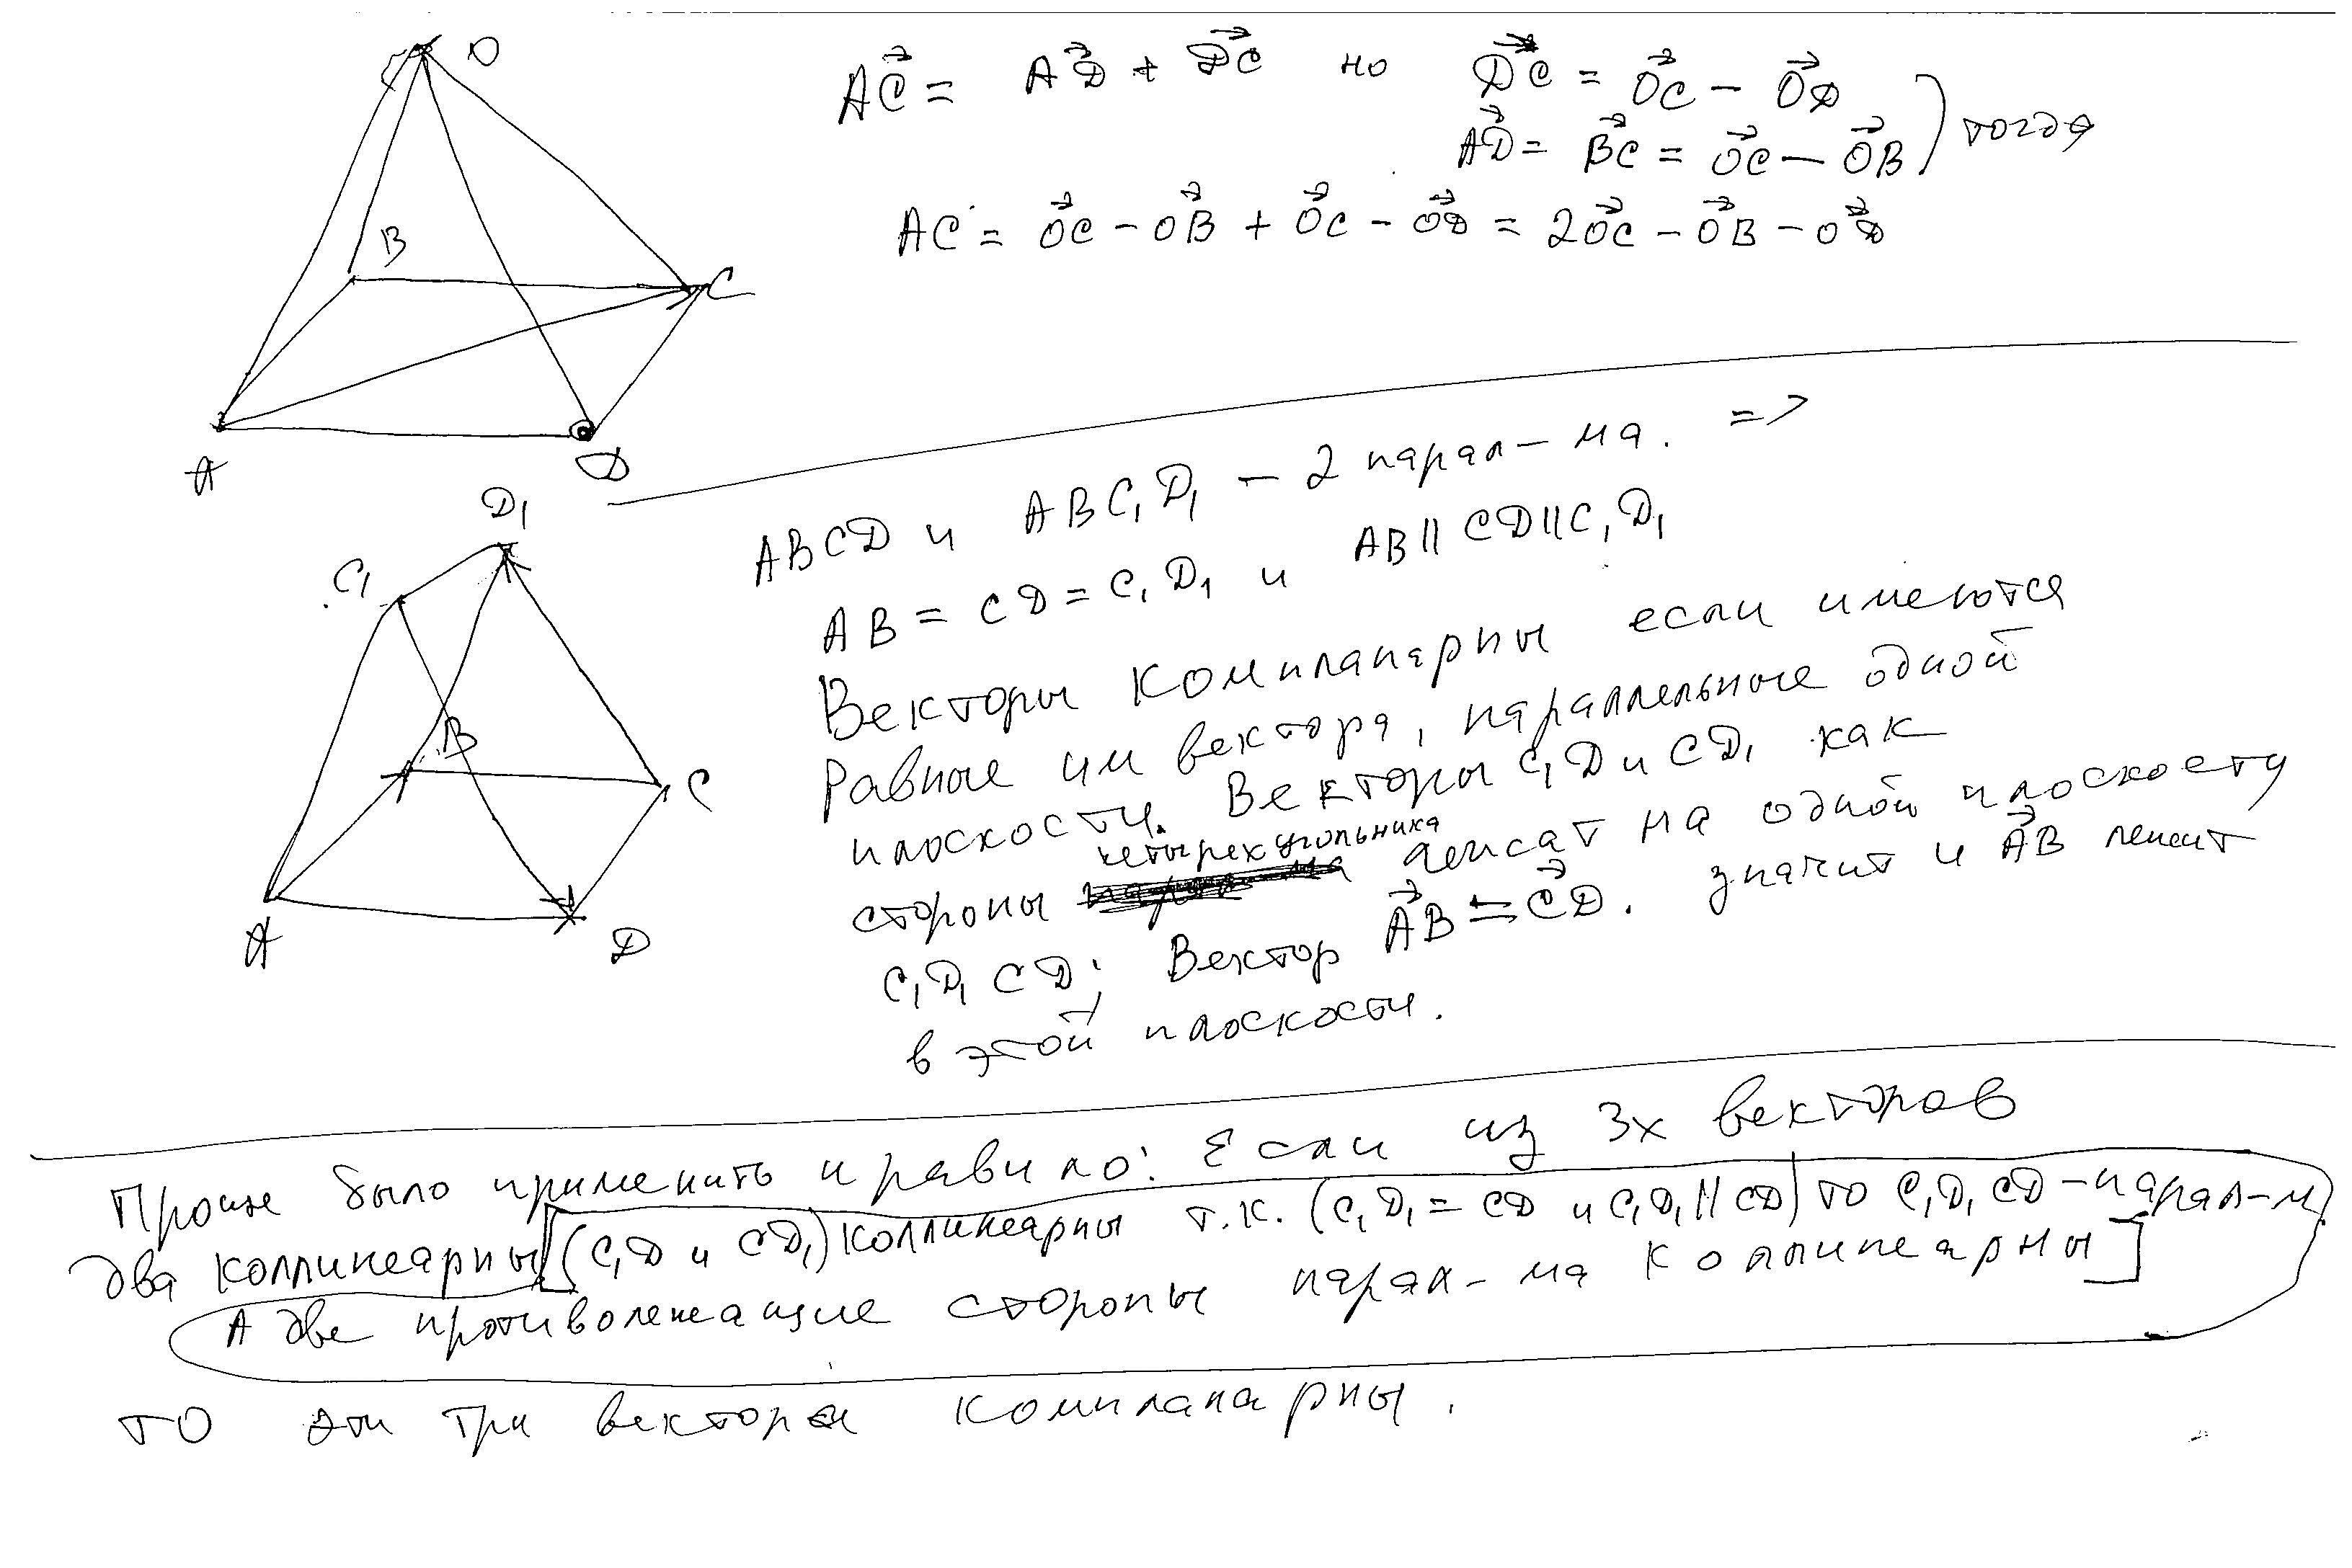 O
B
C
A
D
AC = AD + DC но DC = OC - OD
AD = BC = OC - OB ) тогда
AC = OC - OB + OC - OD = 2OC - OB - OD
D₁
C₁
B
C
A
D
ABCD и ABC₁D₁ - 2 парал-ма. =>
AB = CD = C₁D₁ и AB || CD || C₁D₁
Векторы Компланарны если имеются
равные им вектора, параллельные одной
плоскости. Векторы C₁D и CD₁ как
стороны четырехугольника лежат на одной плоскости
C₁D₁CD; Вектор AB = CD. значит и AB лежит
в этой плоскости.
Проще было применить правило: Если из 3х векторов
два коллинеарны [(C₁D и CD₁) коллинеарны т.к. (C₁D₁ = CD и C₁D₁ || CD) то C₁D₁CD - парал-м
А две противолежащие стороны парал-ма коллинеарны]
то эти три вектора компланарны.